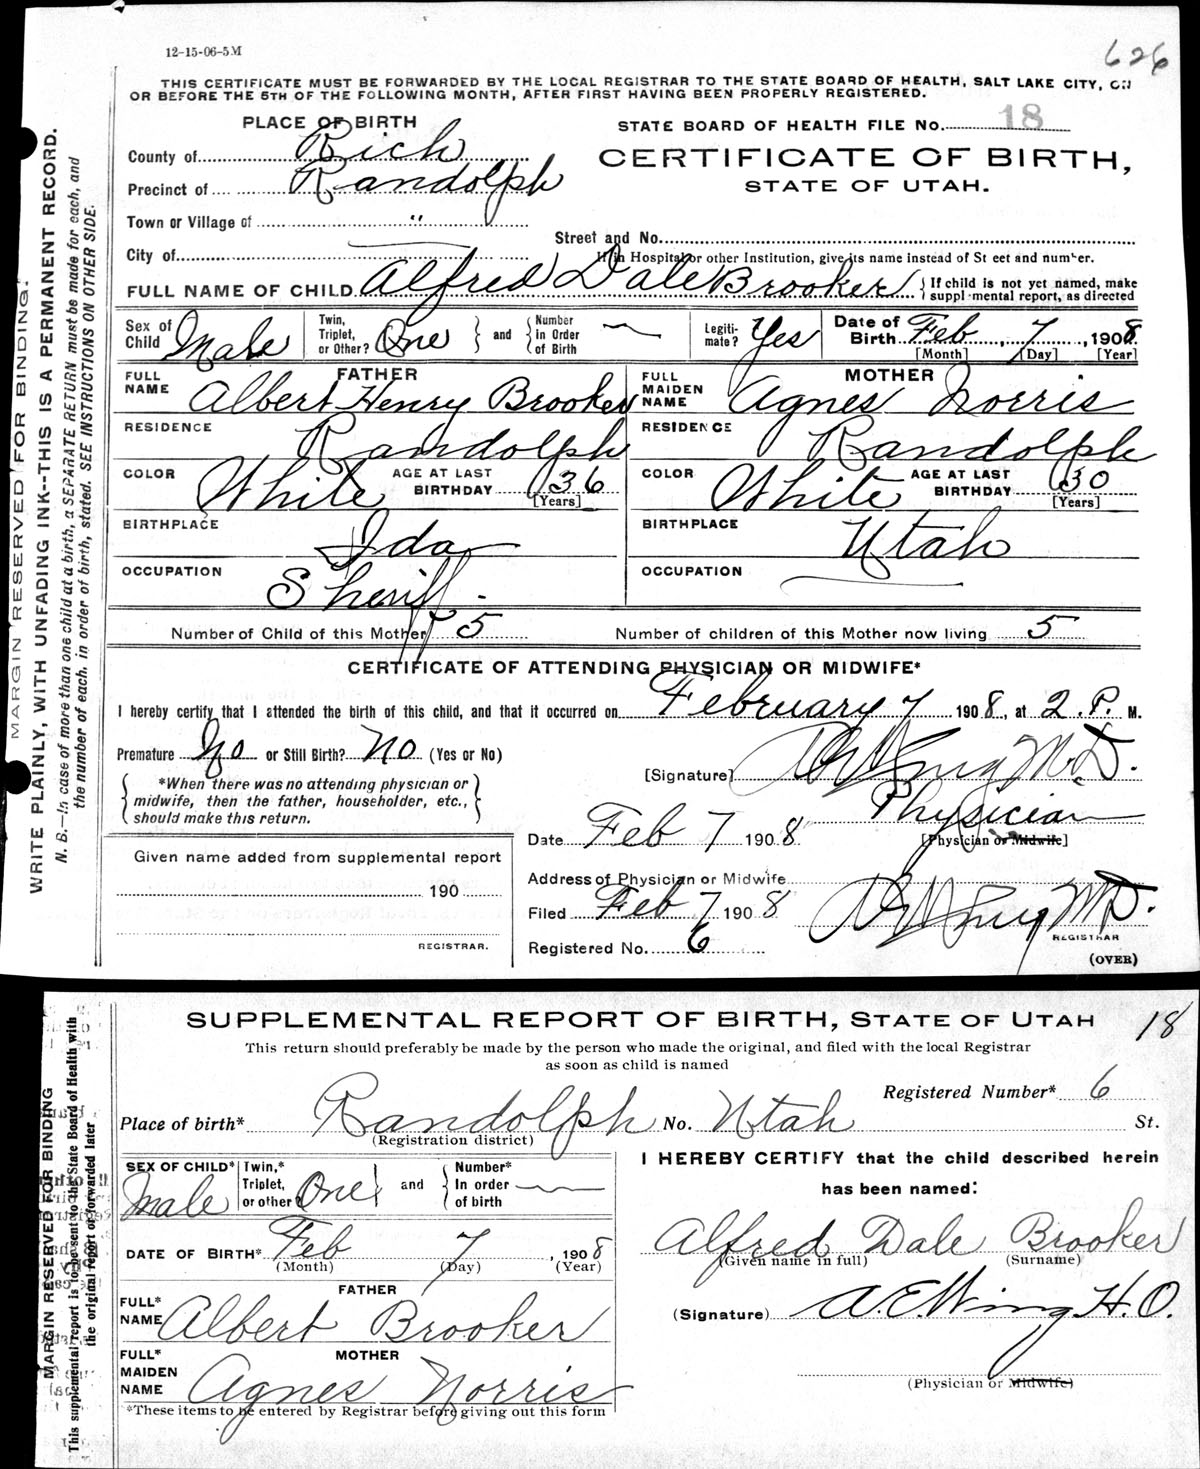 12-15-06-5M
626
THIS CERTIFICATE MUST BE FORWARDED BY THE LOCAL REGISTRAR TO THE STATE BOARD OF HEALTH, SALT LAKE CITY, ON
OR BEFORE THE 5TH OF THE FOLLOWING MONTH, AFTER FIRST HAVING BEEN PROPERLY REGISTERED.
PLACE OF BIRTH
STATE BOARD OF HEALTH FILE No. 18
County of Rich
CERTIFICATE OF BIRTH,
Precinct of Randolph
STATE OF UTAH.
Town or Village of "
Street and No.
City of
If in Hospital or other Institution, give its name instead of Street and number.
FULL NAME OF CHILD Alfred Dale Brooker { If child is not yet named, make supplemental report, as directed
Sex of Child Male Twin, Triplet, or Other? One } and { Number in Order of Birth — Legitimate? Yes Date of Birth Feb, 7, 1908
[Month] [Day] [Year]
FATHER MOTHER
FULL NAME Albert Henry Brooker FULL MAIDEN NAME Agnes Norris
RESIDENCE Randolph RESIDENCE Randolph
COLOR White AGE AT LAST BIRTHDAY 36 [Years] COLOR White AGE AT LAST BIRTHDAY 30 [Years]
BIRTHPLACE Ida BIRTHPLACE Utah
OCCUPATION Sheriff. OCCUPATION
Number of Child of this Mother 5 Number of children of this Mother now living 5
CERTIFICATE OF ATTENDING PHYSICIAN OR MIDWIFE*
I hereby certify that I attended the birth of this child, and that it occurred on February 7 1908, at 2 P. M.
Premature No or Still Birth? No (Yes or No)
[Signature] M.D.
{ *When there was no attending physician or midwife, then the father, householder, etc., should make this return. }
Physician
Date Feb 7 1908 [Physician or Midwife]
Given name added from supplemental report
Address of Physician or Midwife
190
Filed Feb 7 1908 M.D.
REGISTRAR. Registered No. 6 REGISTRAR
(OVER)
MARGIN RESERVED FOR BINDING.
WRITE PLAINLY, WITH UNFADING INK--THIS IS A PERMANENT RECORD.
N. B.—In case of more than one child at a birth, a SEPARATE RETURN must be made for each, and
the number of each, in order of birth, stated. SEE INSTRUCTIONS ON OTHER SIDE.
SUPPLEMENTAL REPORT OF BIRTH, STATE OF UTAH 18
This return should preferably be made by the person who made the original, and filed with the local Registrar
as soon as child is named
Registered Number* 6
Place of birth* Randolph No. Utah St.
(Registration district)
SEX OF CHILD* Male Twin,* Triplet, or other? One } and { Number* In order of birth —
I HEREBY CERTIFY that the child described herein
has been named:
DATE OF BIRTH* Feb 7, 1908
(Month) (Day) (Year)
Alfred Dale Brooker
(Given name in full) (Surname)
FATHER
FULL* NAME Albert Brooker
(Signature) A.E. Wing H.O.
FULL* MAIDEN NAME MOTHER Agnes Norris
(Physician or Midwife)
*These items to be entered by Registrar before giving out this form
MARGIN RESERVED FOR BINDING
This supplemental report is to be sent to the State Board of Health with
the original report or forwarded later